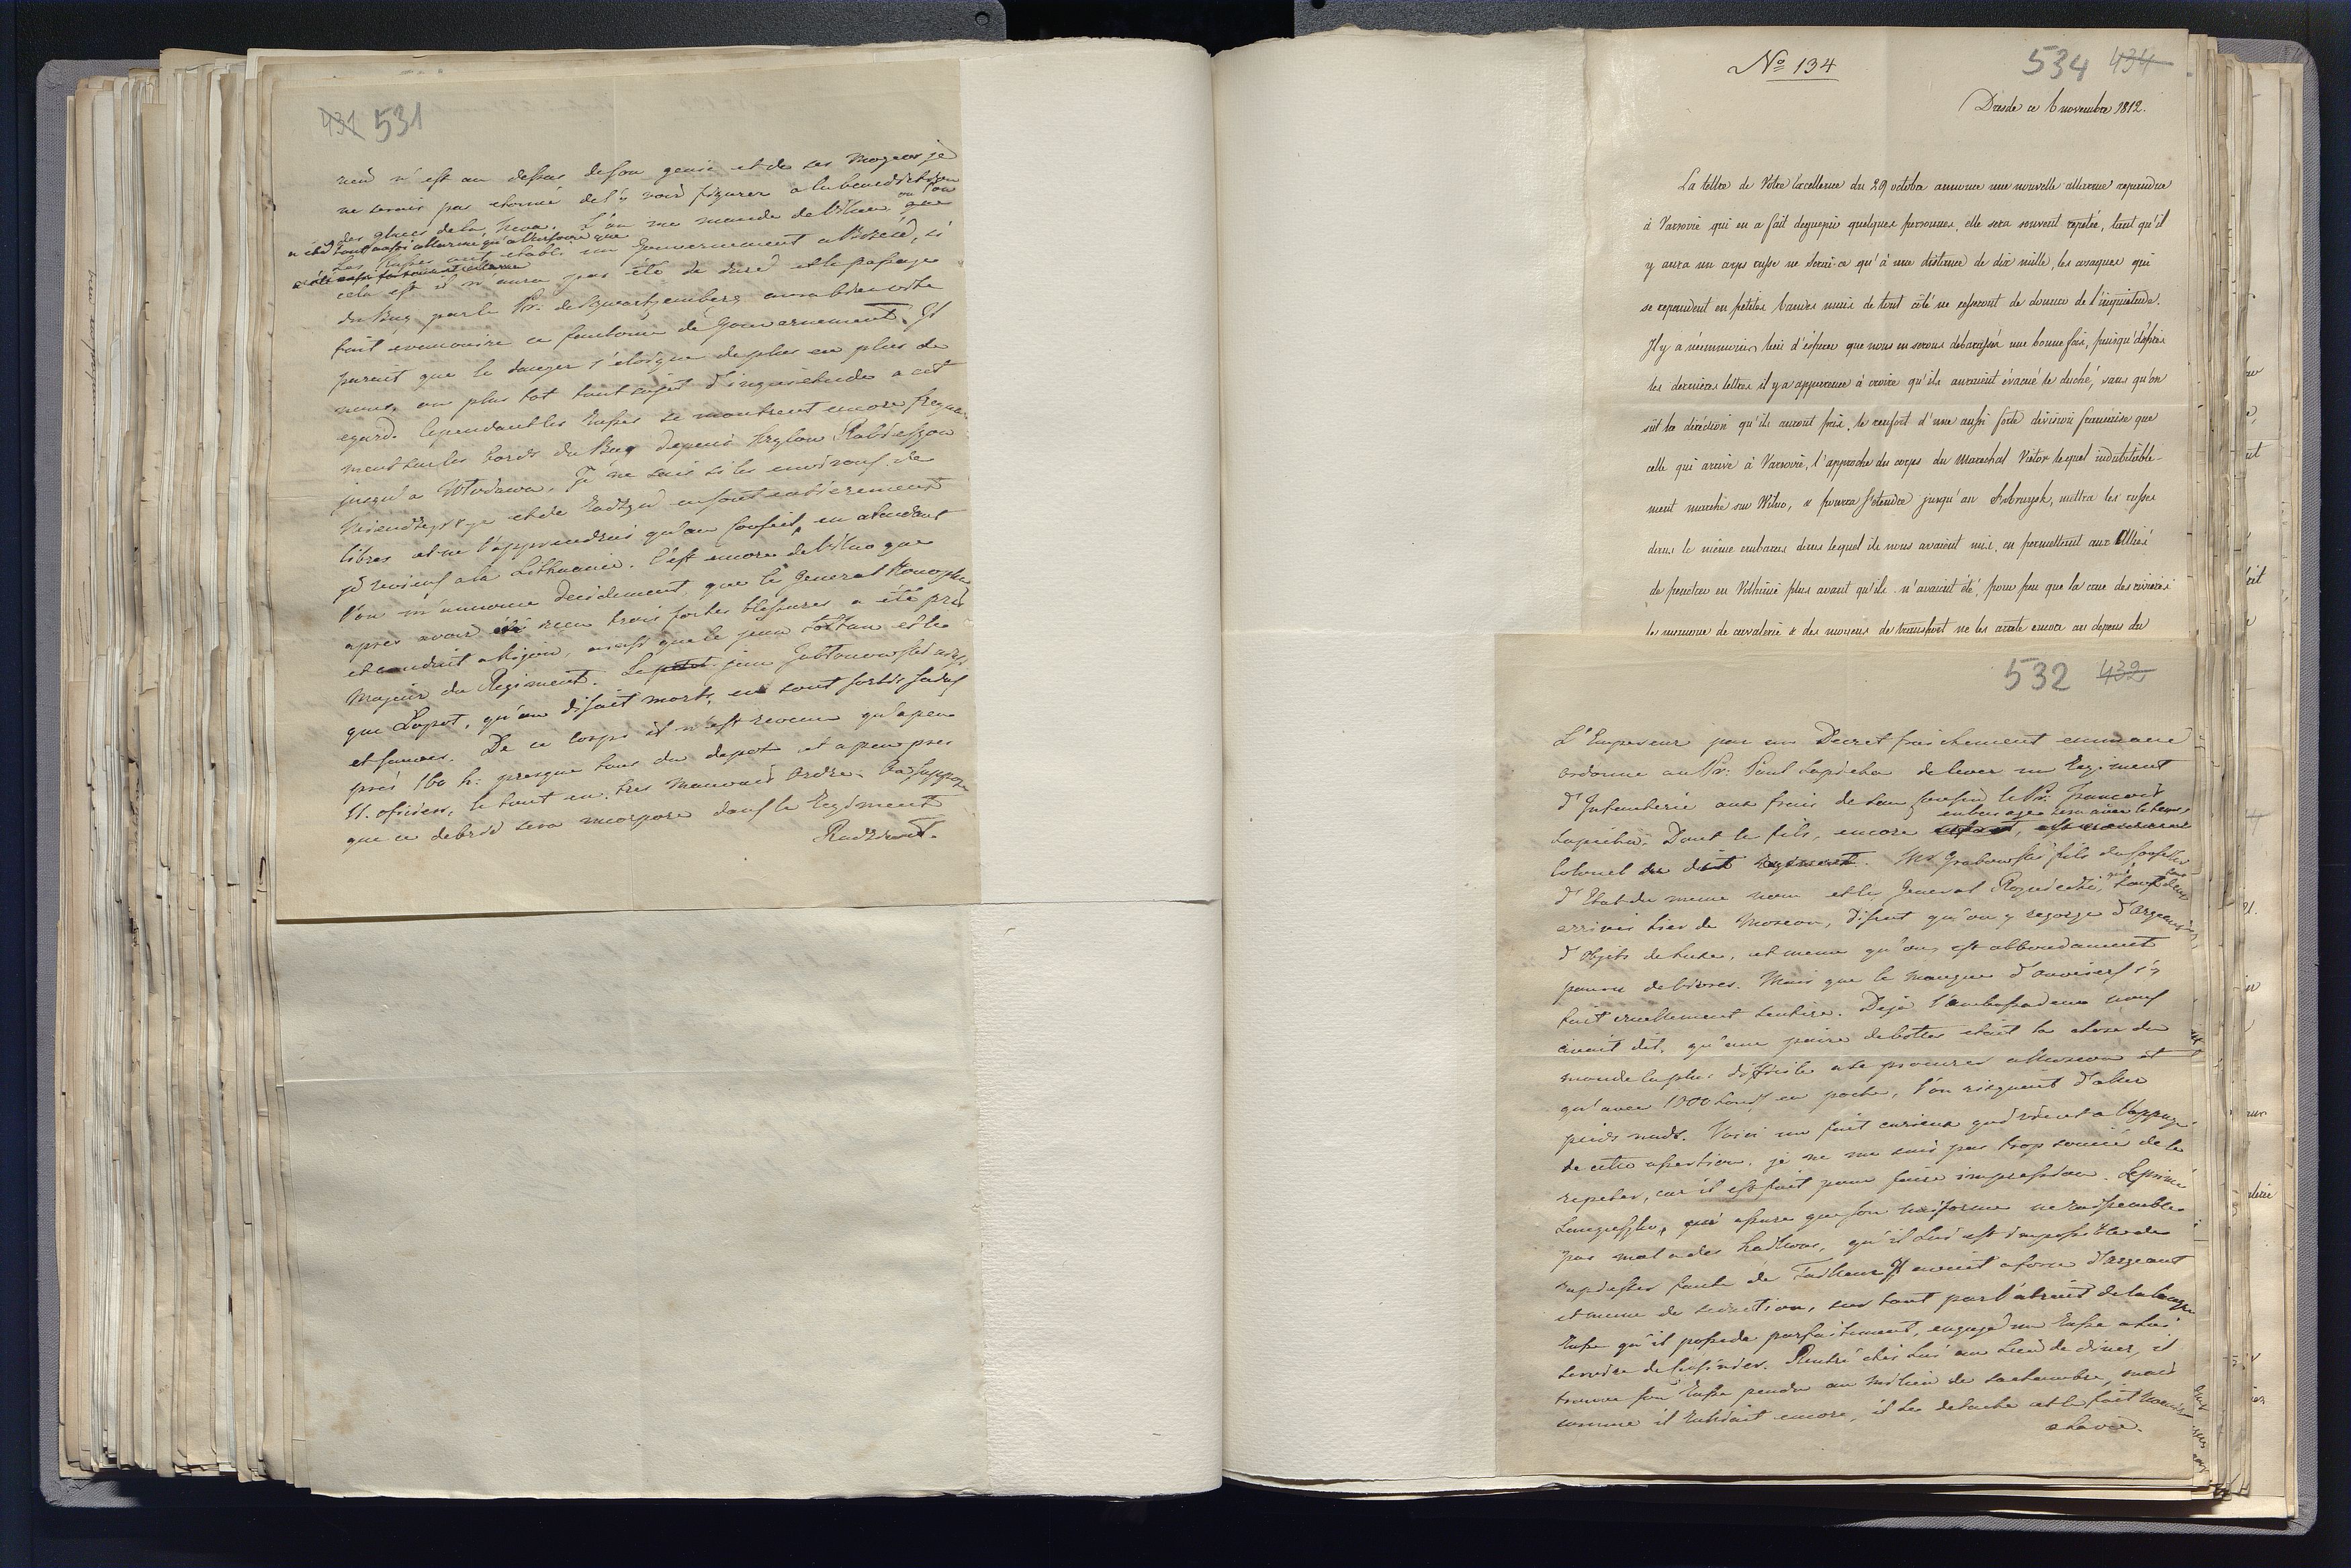 431 531
rien n'est au dessus de son genie et de ses moyens je
ne serais pas etonné de l'y voir figurer a la benediction
des glaces de la Neva. L'on me mande de Vilna que
ou l'on
n'etait tout aussi allarmé qu'a Varsovie que
Les Russes ont etabli un Gouvernement a
cela est il n'aura pas été de duré et le passage
du Bug par le Pr: de Schwartzemberg aura bien vite
fait evanouire ce fantome de Gouvernement. Il
parait que le danger s'eloigne de plus en plus de
nous, ou plus tot tout sujet d'inquietude a cet
egard. Cependant les Russes se montrent encore frequem
ment sur les bords du Bug depuis Krylow
jusqu'a Wlodawa. Je ne sais si les environs de
et de en sont entierement
libres et ne l'apprendrai qu'au Conseil, en atendant
je reviens a la Lithuanie. C'est encore de Vilna que
l'on m'annonce decidement, que le General Konopka
apres avoir reçu trois fortes blessures a été pris
et conduit a ainsi que le jeune et le
Major du Regiment. Le jeune
que Lopot, qu'on disait morts, en sont sortis sains
et sauves. De ce Corps il n'est revenu qu'a peu
près 160 h: presque tous du depot et a peu pres
11. officiers, le tout en tres mauvais ordre. On suppose
que ce debris sera incorporé dans le Regiment
N° 134
534 434
Dresde ce 6 novembre 1812.
La lettre de Votre Excellence du 29 octobre annonce une nouvelle allarme repandue
à Varsovie qui en a fait deguerpir quelques personnes, elle sera souvent repetée, tant qu'il
y aura un corps russe ne serai-ce qu'à une distance de dix mille, les cosaques qui
se repandent en petites bandes mais de tout côté ne cesseront de donner de l'inquietude.
Il y a néanmoins lieu d'esperer que nous en serons debarassés une bonne fois, puisqu'd'après
les dernieres lettres il y a apparence à croire qu'ils auraient évacué le duché, sans qu'on
sût la diréction qu'ils auront prise, le renfort d'une aussi forte division francaise que
celle qui arrive à Varsovie, l'approche du corps du Marechal Victor lequel indubitable-
ment marche sur Wilno, & pourra s'etendre jusqu'au Bobruysk, mettra les russes
dans le même embaras dans lequel ils nous avaient mis, en permettant aux Alliés
de penetrer en Volhinie plus avant qu'ils n'avaient été, pour peu que la crue des rivieres
le manque de cavalerie & des moyens de transport ne les arrete encore au depens du
532 432
L'Empereur par un Decret fraichement emmané
ordonne au Pr: Paul Sapieha de lever un Regiment
d'Infanterie aux frais de son Cousin le Pr: François
en bas age sera avec le tems,
Sapieha. Dont le fils, encore
Colonel du dit Regiment. Mr Grabowski fils du Conseiller
d'Etat du meme nom et le General Rozniecki, qui sont tous deux
arrivés hier de Moscou, disent qu'on y regorge d'argenteries
d'objets de luxe, et meme qu'on y est abbondament
pourvu de vivres. Mais que le manque d'ouvriers s'y
fait cruellement sentire. Deja l'ambassadeur nous
avait dit, qu'une paire de bottes etait la chose du
monde la plus difficile a se procurer a Moscou et
qu'avec 1000 Louis en poche, l'on risquait d'aller
pieds nuds. Voici un fait curieux qui vient a l'appuy
de cette assertion, je ne me suis pas trop soucié de le
repeter, car il est fait pour faire impression. Le prince
qui assure que son uniforme ne ressemble
pas mal a des haillons, qu'il lui est impossible de
rapiesser faute de Tailleur Il avait a force d'argeant
et meme de seduction, sur tout par l'atrait de la langue
Russe qu'il possede parfaitement, engagé un Russe a lui
servire de Cuisinier. Rentré chés lui au lieu de diner, il
trouve son Russe pendu au milieu de sa chambre, mais
comme il encore, il le detache et le fait revenir
a la vie.